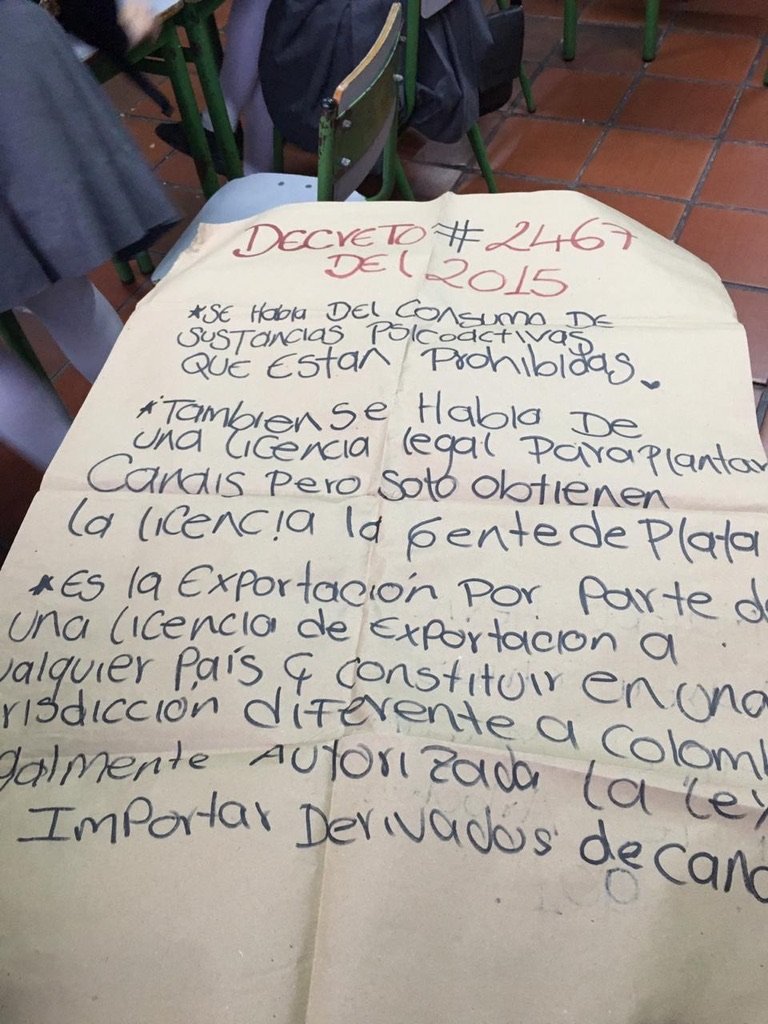 DECRETO # 2467
DEL 2015
*SE Habla DEL CONSUMO DE
SUSTANCIAS PSICOACTIVAS
QUE ESTAN ProHIBIDAS.
*TAMBIEN SE HABLA DE
UNA LICENCIA legal Para Plantar
Canais Pero Solo obtienen
la licencia la Gente de Plata
*Es la Exportación Por Parte de
una licencia de Exportacion a
ualquier País y constituir en una
risdicción diferente a Colomb
galmente Autorizada la ley
Importar Derivados de cana